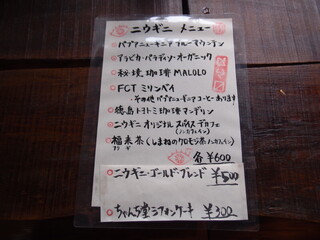 ニウギニ メニュー
パプアニューギニア ブルーマウンテン
アラビカ・パラダイソ・オーガニック
秘境珈琲 MALOLO
FCT ミリンベイ
その他パプアニューギニアコーヒーあります
徳島トラトミ珈琲マンデリン
ニウギニ オリジナル スパイス デカフェ
(ノンカフェイン)
福来茶 (しまねのクロモジ茶ノンカフェイン)
各 ¥600
ニウギニ・ゴールド・ブレンド ¥500
ちゃんち堂シフォンケーキ ¥300